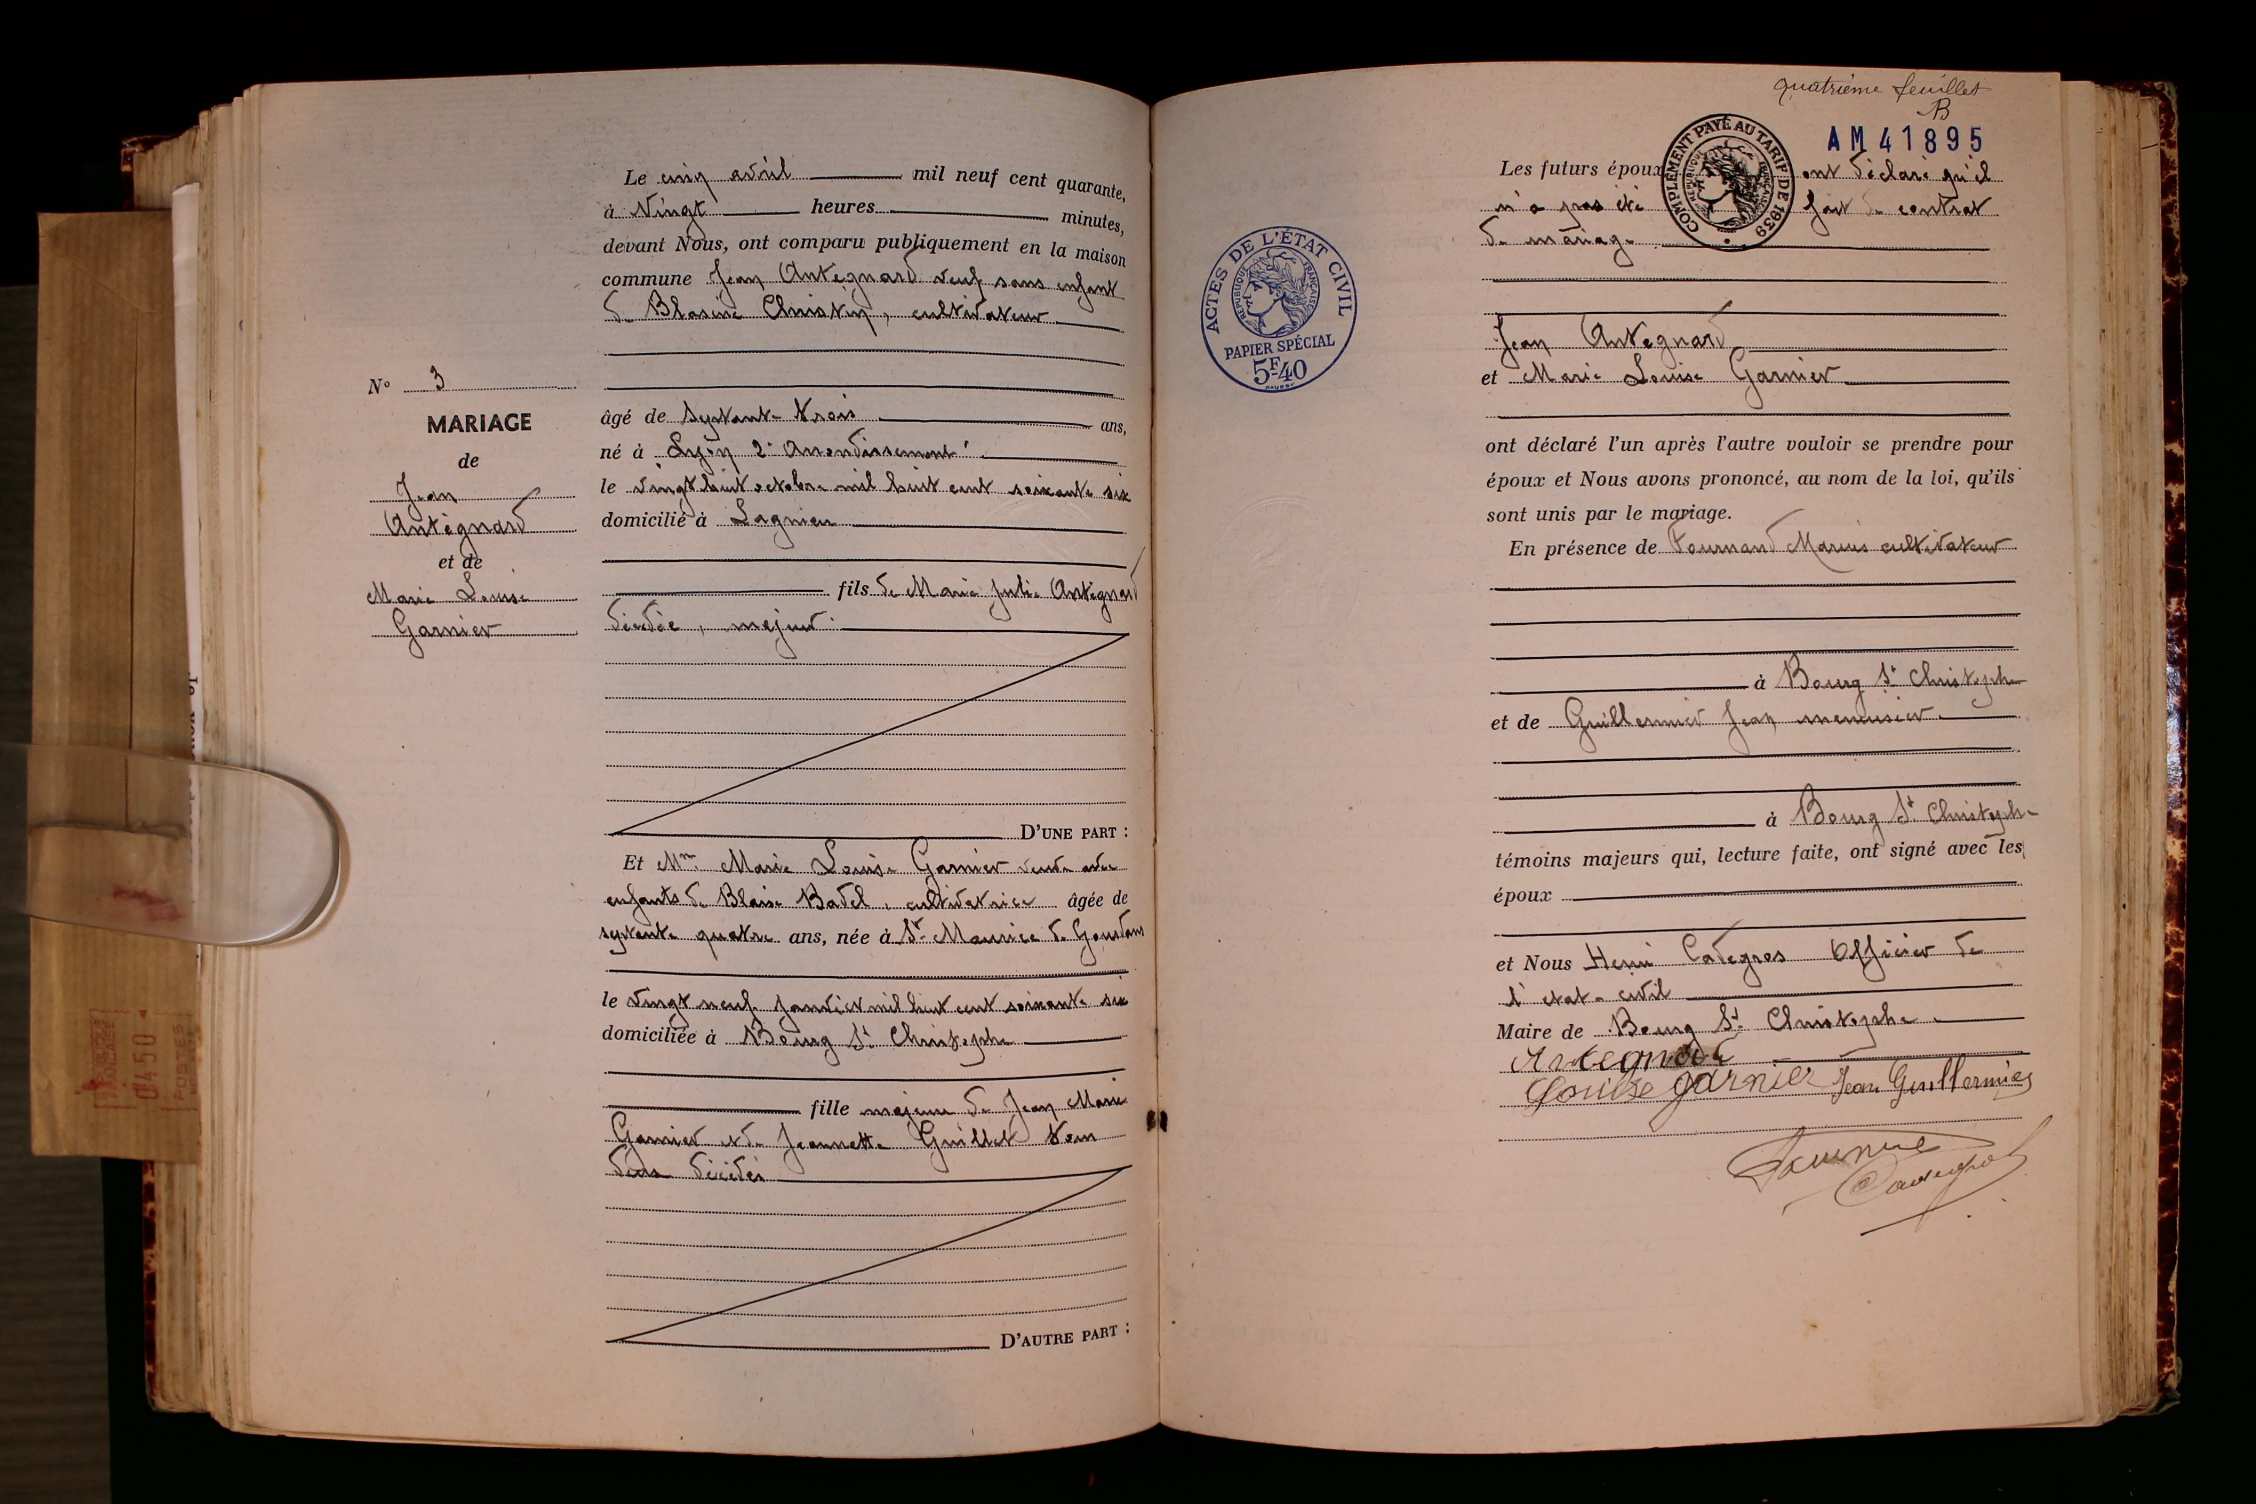 Le cinq avril mil neuf cent quarante,
à vingt heures minutes,
devant Nous, ont comparu publiquement en la maison
commune Jean Antégnard veuf sans enfant
de Blasine Christin, cultivateur
N° 3
MARIAGE
de
Jean
Antégnard
et de
Marie Louise
Garnier
âgé de septante trois ans,
né à Lyon 2e Arrondissement
le vingt huit octobre mil huit cent soixante six
domicilié à Lagnieu
fils de Marie Julie Antégnard
décédée, majeur.
D'UNE PART :
Et Mme Marie Louise Garnier veuve avec
enfants de Blaise Badel, cultivatrice âgée de
septante quatre ans, née à St Maurice de Gourdans
le vingt neuf janvier mil huit cent soixante six
domiciliée à Bourg St Christophe
fille majeure de Jean Marie
Garnier et de Jeannette Guillet tous
deux décédés
D'AUTRE PART :
quatrième feuillet
B
AM41895
COMPLÉMENT PAYÉ AU TARIF DE 1939
RÉPUBLIQUE FRANÇAISE
Les futurs époux ont déclaré qu'il
n'a pas été fait de contrat
de mariage
ACTES DE L'ÉTAT CIVIL
RÉPUBLIQUE FRANÇAISE
PAPIER SPÉCIAL
5F40
Jean Antégnard
et Marie Louise Garnier
ont déclaré l'un après l'autre vouloir se prendre pour
époux et Nous avons prononcé, au nom de la loi, qu'ils
sont unis par le mariage.
En présence de Fournand Marius cultivateur
à Bourg St Christophe
et de Guillermier Jean menuisier.
à Bourg St Christophe
témoins majeurs qui, lecture faite, ont signé avec les
époux
et Nous Henri Cadegros Officier de
l'état-civil
Maire de Bourg St Christophe.
Antegnard
Louise garnier Jean Guillermier
0450
POSTES